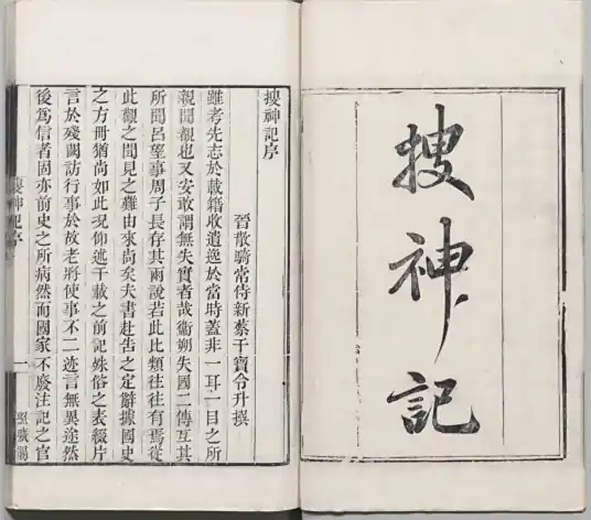 搜神記
搜神記序
晉散騎常侍新蔡干寶令升撰
雖考先志於載籍收遺逸於當時蓋非一耳一目之所
親聞覩也又安敢謂無失實者哉衞朔失國二傳互其
所聞呂望事周子長存其兩說若此比類往往有焉從
此觀之聞見之難由來尚矣夫書赴告之定辭據國史
之方冊猶尚如此況仰述千載之前記殊俗之表綴片
言於殘闕訪行事於故老將使事不二迹言無異途然
後爲信者固亦前史之所病然而國家不廢注記之官
搜神記序
一
照曠閣